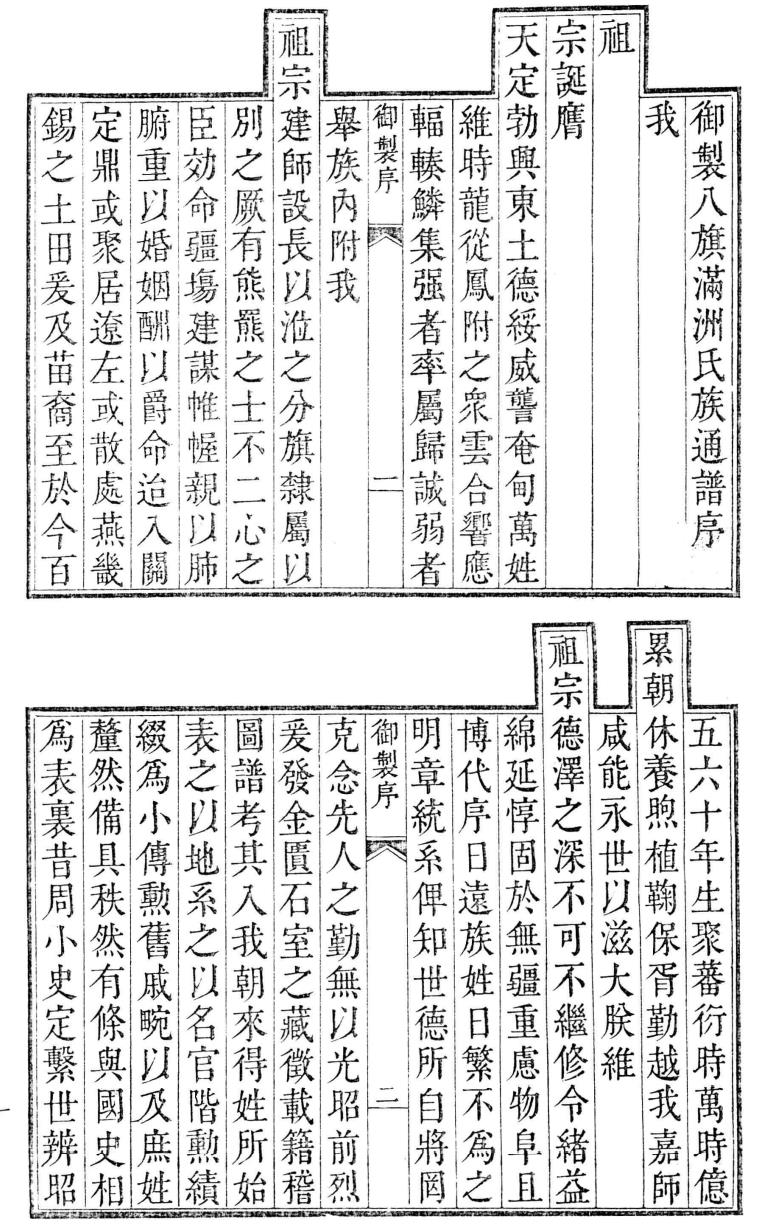 御製八旗滿洲氏族通譜序
我
祖
宗誕膺
天定勃興東土德綏威讋奄甸萬姓
維時龍從鳳附之衆雲合響應
輻輳鱗集强者率屬歸誠弱者
御製序 一
舉族內附我
祖宗建師設長以涖之分旗隸屬以
別之厥有熊羆之士不二心之
臣効命疆塲建謀帷幄親以肺
腑重以婚姻酬以爵命迨入關
定鼎或聚居遼左或散處燕畿
錫之土田爰及苗裔至於今百
五六十年生聚蕃衍時萬時億
累朝休養煦植鞠保胥勤越我嘉師
咸能永世以滋大朕維
祖宗德澤之深不可不繼修令緒益
綿延惇固於無疆重慮物阜且
博代序日遠族姓日繁不爲之
明章統系俾知世德所自將罔
御製序 二
克念先人之勤無以光昭前烈
爰發金匱石室之藏徵載籍稽
圖譜考其入我朝來得姓所始
表之以地系之以名官階勲績
綴爲小傳勲舊戚畹以及庶姓
釐然備具秩然有條與國史相
爲表裏昔周小史定繫世辨昭